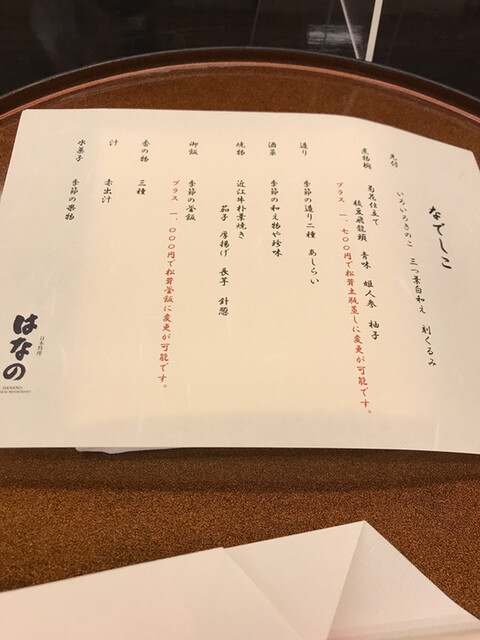 なでしこ
先付
いろいろきのこ 三つ葉白和え 刻くるみ
煮物椀
菊花仕立て
枝豆飛龍頭 青味 姫人参 柚子
プラス 一、七〇〇円で松茸土瓶蒸しに変更が可能です。
造り
季節の造り二種 あしらい
酒菜
季節の和え物や珍味
焼物
近江牛朴葉焼き
茄子 厚揚げ 長芋 針葱
御飯
季節の釜飯
プラス 一、〇〇〇円で松茸釜飯に変更が可能です。
香の物
三種
汁
赤出汁
水菓子
季節の果物
日本料理
はなの
HANANO